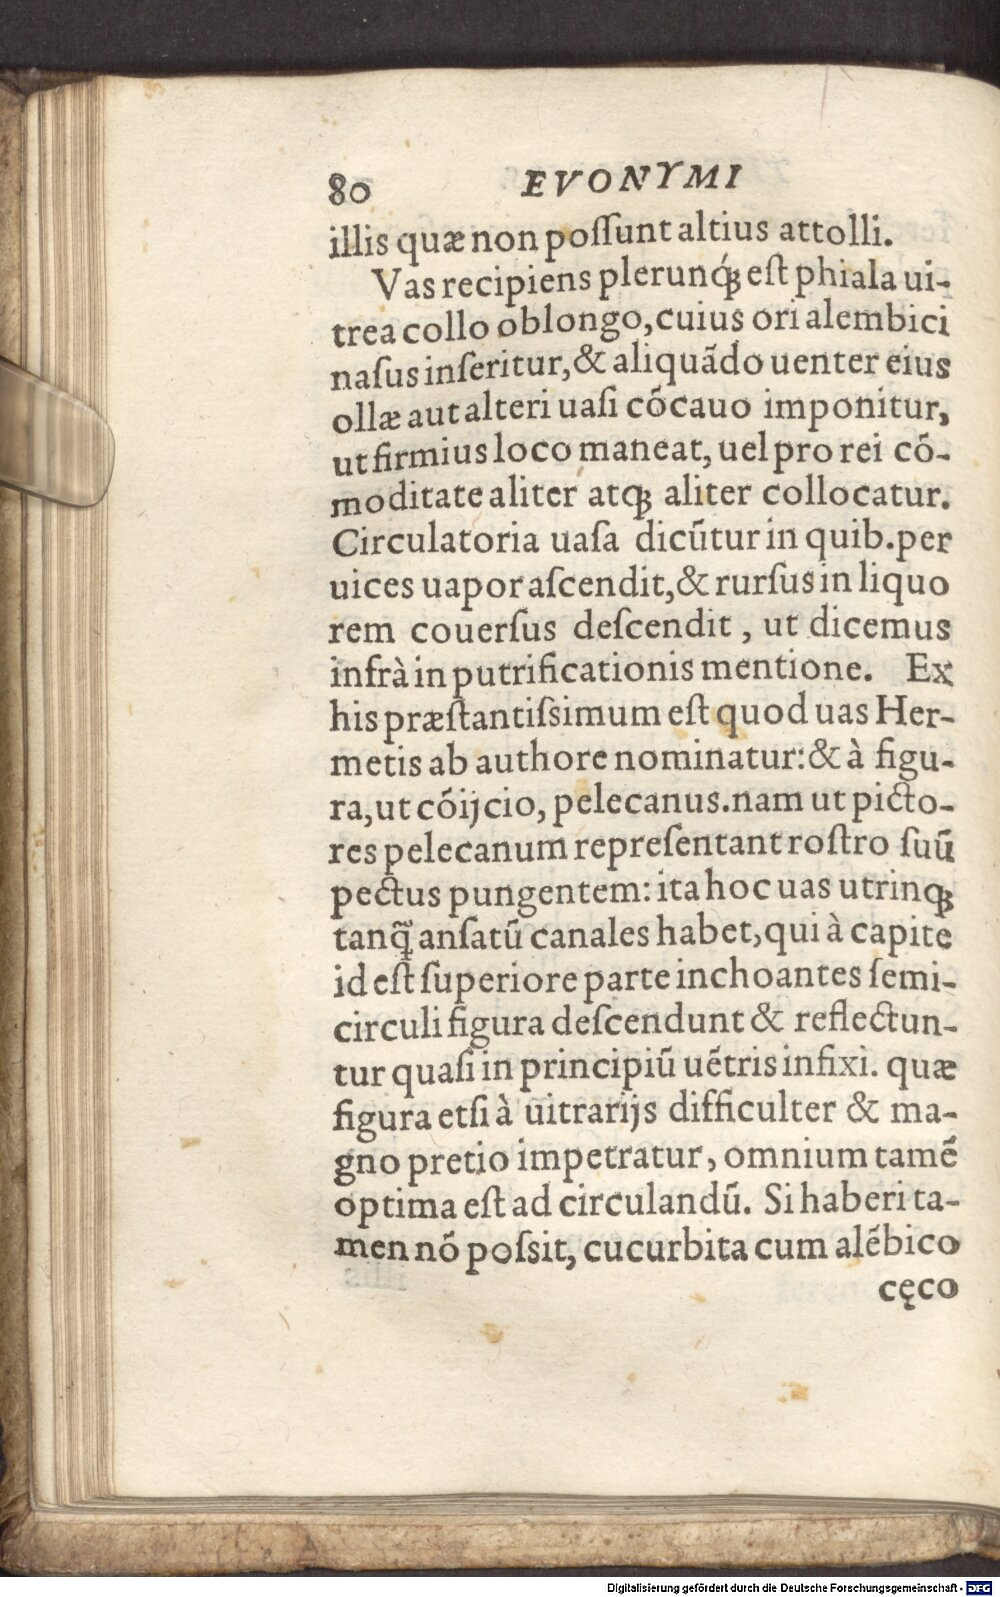 80 EVONYMI
illis quæ non poſſunt altius attolli.
Vas recipiens plerunq́ꝫ eſt phiala ui-
trea collo oblongo, cuius ori alembici
naſus inſeritur, & aliquãdo uenter eius
ollæ aut alteri uaſi cõcauo imponitur,
ut firmius loco maneat, uel pro rei cõ-
moditate aliter atqꝫ aliter collocatur.
Circulatoria uaſa dicũtur in quib. per
uices uapor aſcendit, & rurſus in liquo
rem couerſus deſcendit, ut dicemus
infrà in putrificationis mentione. Ex
his præſtantiſsimum eſt quod uas Her-
metis ab authore nominatur: & à figu-
ra, ut cõijcio, pelecanus. nam ut picto-
res pelecanum repreſentant roſtro ſuũ
pectus pungentem: ita hoc uas utrinqꝫ
tanq̃ anſatũ canales habet, qui à capite
id eſt ſuperiore parte inchoantes ſemi-
circuli figura deſcendunt & reflectun-
tur quaſi in principiũ uẽtris infixi. quæ
figura etſi à uitrarijs difficulter & ma-
gno pretio impetratur, omnium tamẽ
optima eſt ad circulandũ. Si haberi ta-
men nõ poſsit, cucurbita cum alẽbico
cęco
Digitalisierung gefördert durch die Deutsche Forschungsgemeinschaft - DFG